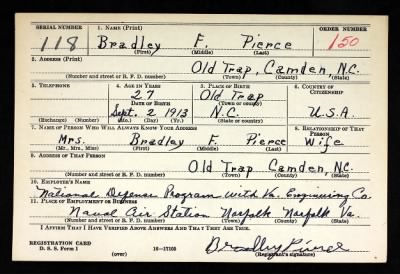 SERIAL NUMBER 1. NAME (Print) ORDER NUMBER
118 Bradley F. Pierce 150
(First) (Middle) (Last)
2. ADDRESS (Print)
Old Trap, Camden, N.C.
(Number and street or R. F. D. number) (Town) (County) (State)
3. TELEPHONE 4. AGE IN YEARS 5. PLACE OF BIRTH 6. COUNTRY OF CITIZENSHIP
27 Old Trap
DATE OF BIRTH (Town or county)
Sept. 2 1913 N.C. U.S.A.
(Exchange) (Number) (Mo.) (Day) (Yr.) (State or country)
7. NAME OF PERSON WHO WILL ALWAYS KNOW YOUR ADDRESS 8. RELATIONSHIP OF THAT PERSON
Mrs. Bradley F. Pierce Wife
(Mr., Mrs., Miss) (First) (Middle) (Last)
9. ADDRESS OF THAT PERSON
Old Trap Camden, N.C.
(Number and street or R. F. D. number) (Town) (County) (State)
10. EMPLOYER'S NAME
National Defense Program with Va. Engineering Co.
11. PLACE OF EMPLOYMENT OR BUSINESS
Naval Air Station Norfolk Norfolk Va.
(Number and street or R. F. D. number) (Town) (County) (State)
I AFFIRM THAT I HAVE VERIFIED ABOVE ANSWERS AND THAT THEY ARE TRUE.
REGISTRATION CARD
D. S. S. Form 1 (over) 16-17105 Bradley Pierce
(Registrant's signature)